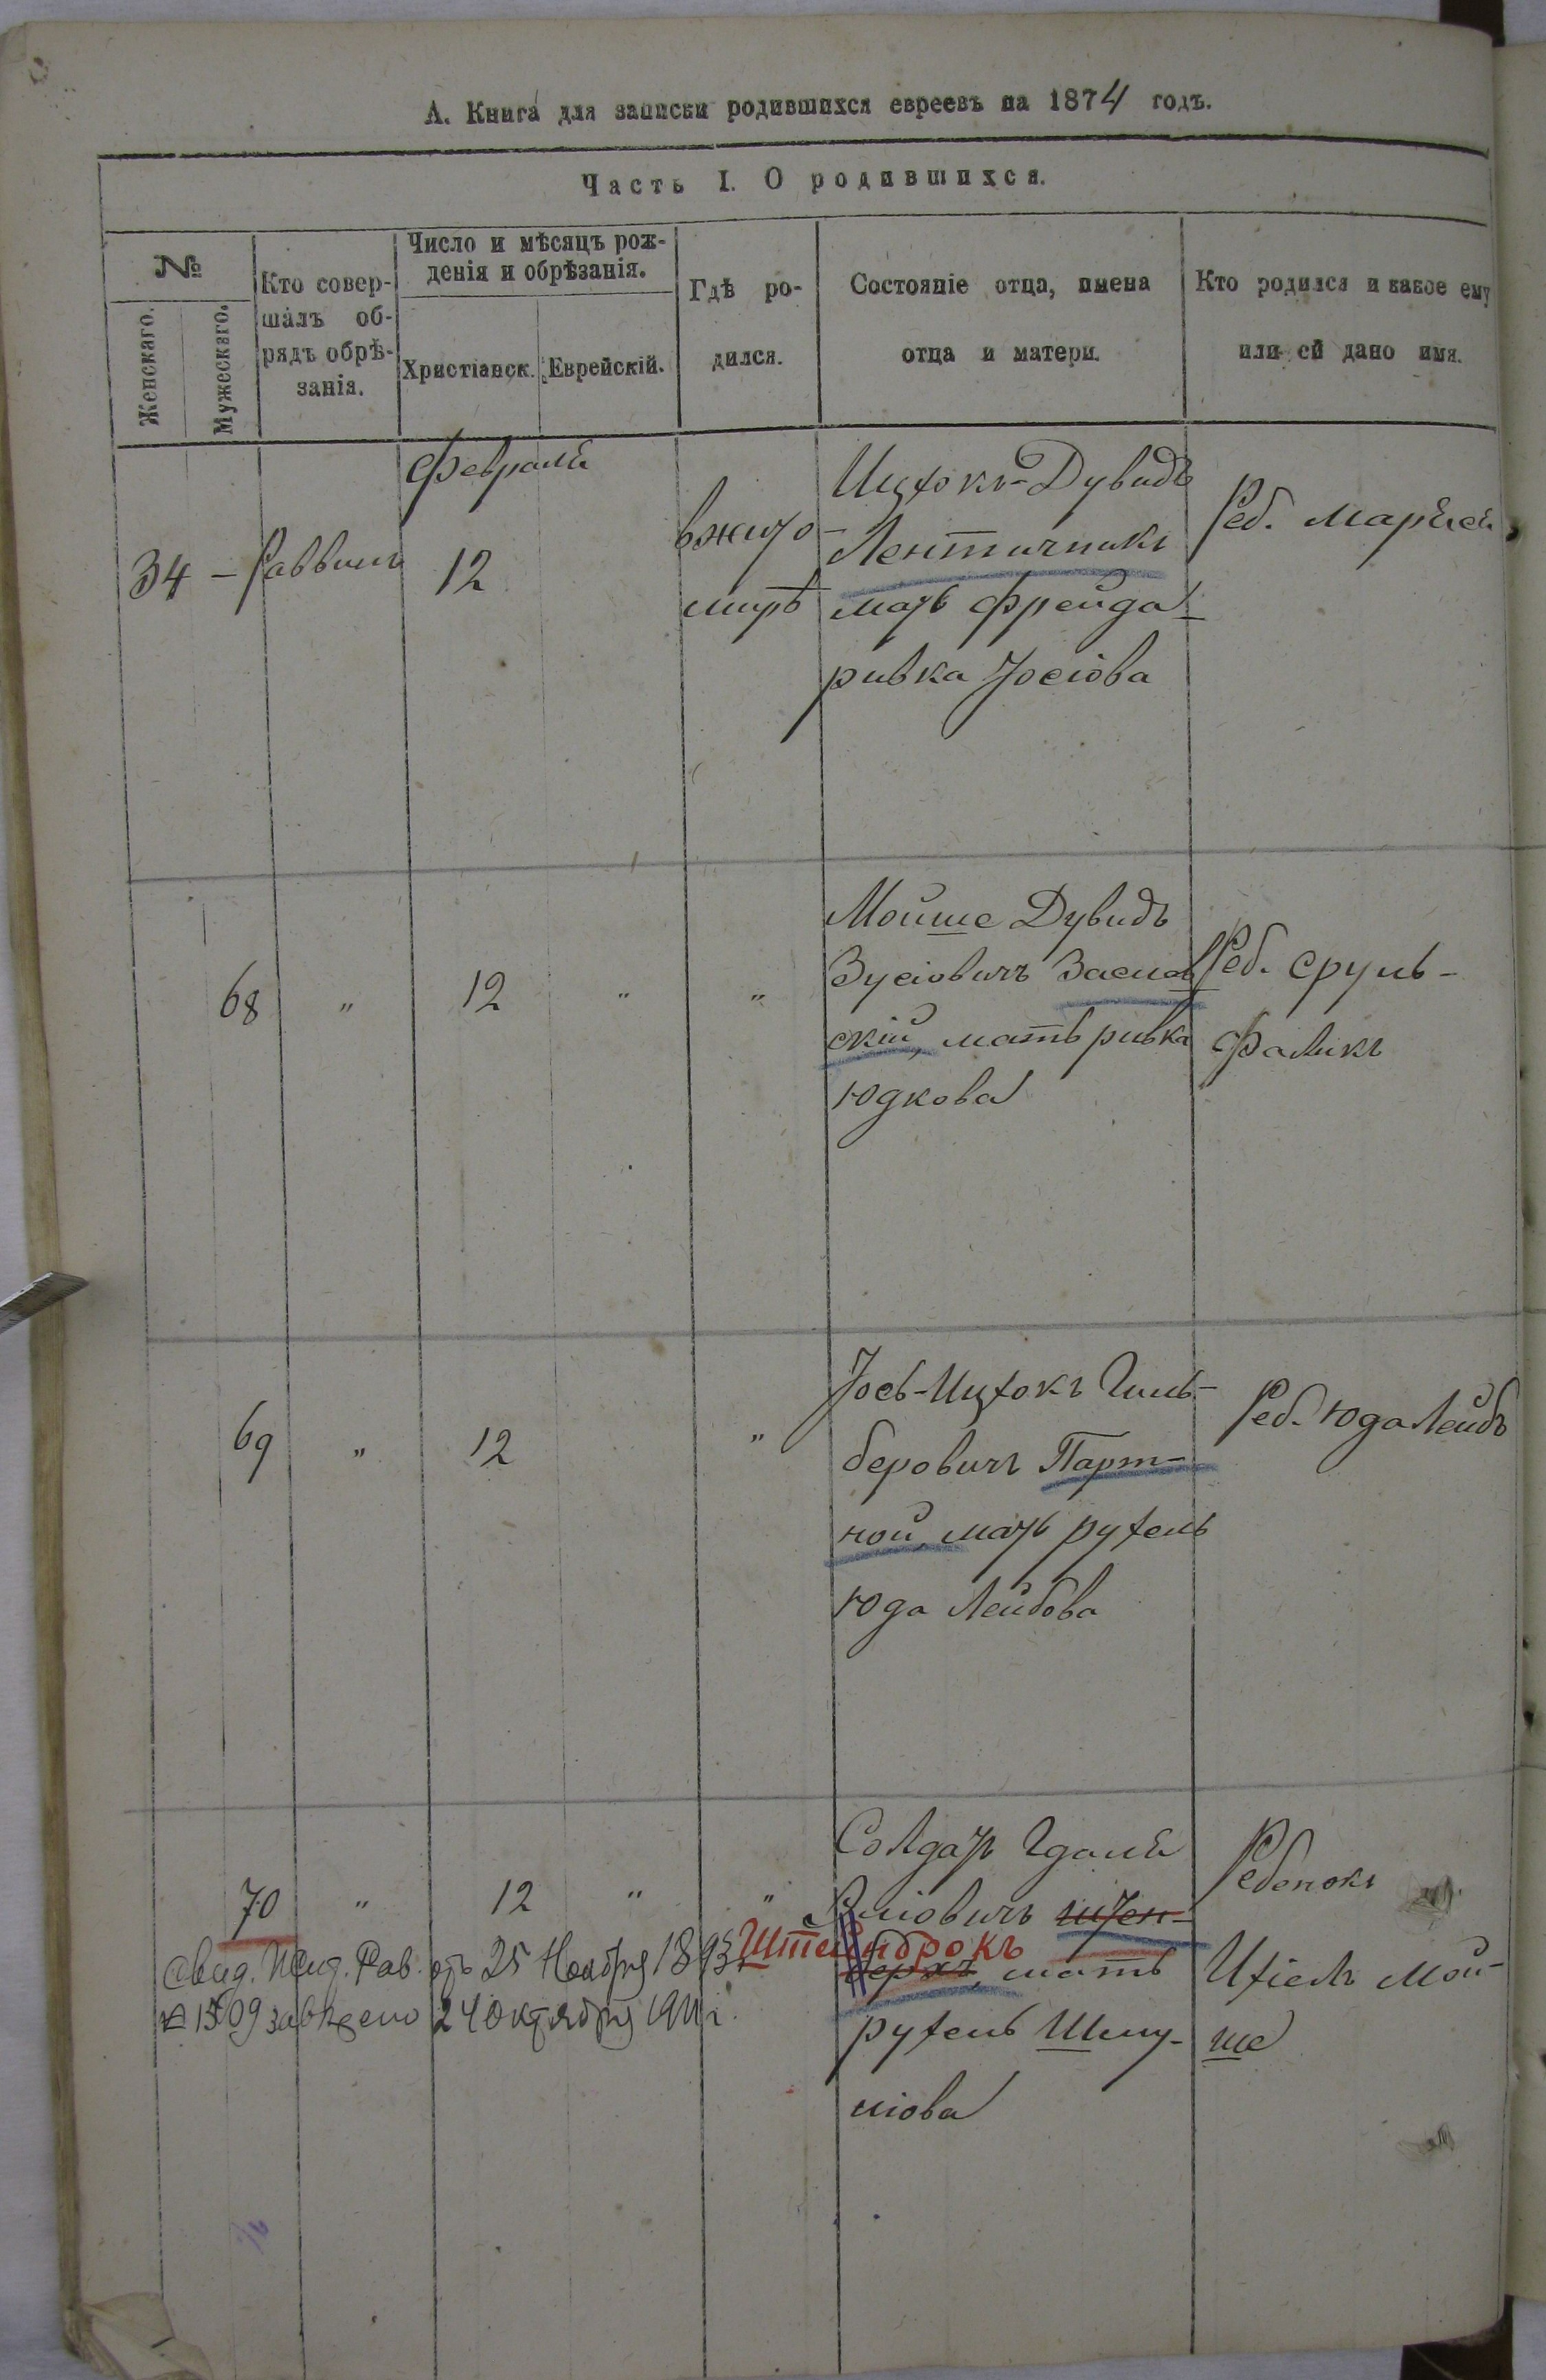 А. Книга для записки родившихся евреевъ на 1874 годъ.
Часть I. О родившихся.
№
Женскаго.
Мужескаго.
Кто совер-
шалъ об-
рядъ обрѣ-
занія.
Число и мѣсяцъ рож-
денія и обрѣзанія.
Христіанск.
Еврейскій.
Гдѣ ро-
дился.
Состояніе отца, имена
отца и матери.
Кто родился и какое ему
или ей дано имя.
Февраля
34 - Раввинъ 12
вжито-
мирѣ
Ицхокъ-Дувидъ
Лентичникъ
мать Фрейда-
ривка Іосіова
Реб. Маріся
68 " 12 " "
Мойше Дувидъ
Зусіовичъ Заслав
скій, мать ривка
Юдкова
Реб. Сруль-
Фаликъ
69 " 12 "
Іось-Ицхокъ Гиль-
беровичъ Парт-
ной, мать рухель
Юда Лейбова
Реб. Юда Лейбъ
70 " 12 " "
Солдатъ Гдаля
штен-
Штейнброкъ
берхъ, мать
рухель Шму-
лiова
Ребенокъ
Ихіель Мой-
ше
Свид. Жит. Рав. отъ 25 Ноября 1893 г.
№ 1509 заведено 24 октября 1911 г.